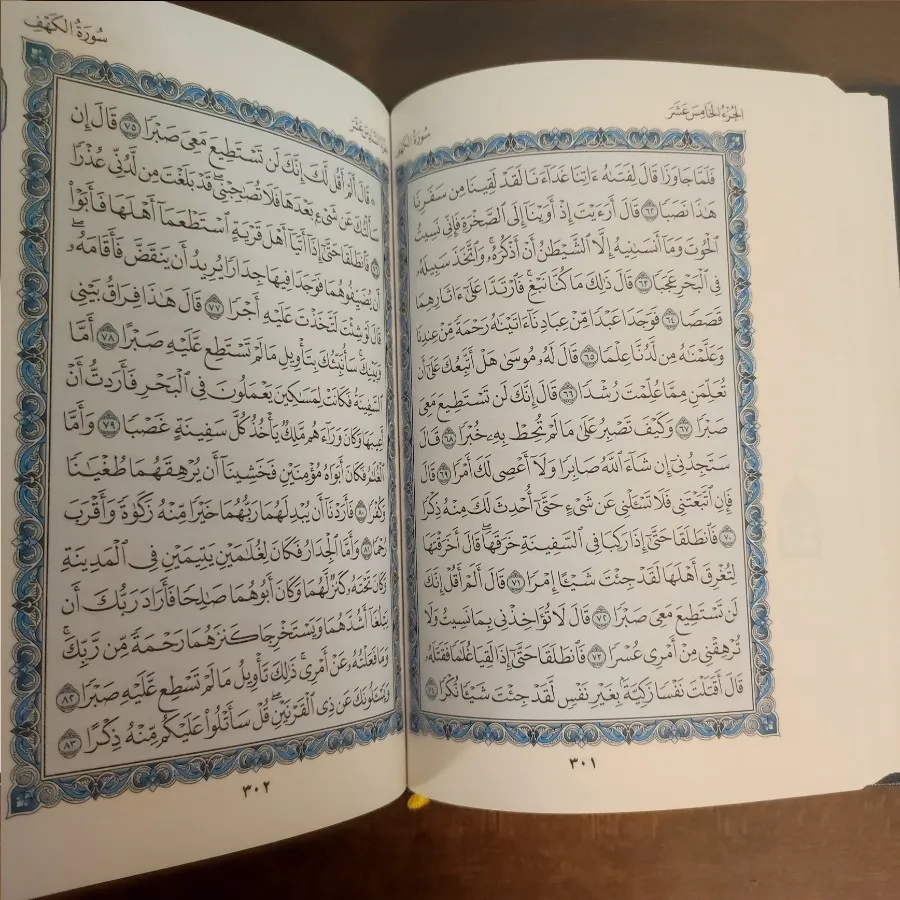 الجزء الخامس عشر
سورة الكهف
فَلَمَّا جَاوَزَا قَالَ لِفَتَىٰهُ ءَاتِنَا غَدَآءَنَا لَقَدْ لَقِينَا مِن سَفَرِنَا
هَٰذَا نَصَبًا ٦٢ قَالَ أَرَءَيْتَ إِذْ أَوَيْنَآ إِلَى الصَّخْرَةِ فَإِنِّي نَسِيتُ
الْحُوتَ وَمَآ أَنسَىٰنِيهُ إِلَّا الشَّيْطَٰنُ أَنْ أَذْكُرَهُۥ ۚ وَاتَّخَذَ سَبِيلَهُۥ
فِي الْبَحْرِ عَجَبًا ٦٣ قَالَ ذَٰلِكَ مَا كُنَّا نَبْغِ ۚ فَارْتَدَّا عَلَىٰٓ ءَاثَارِهِمَا
قَصَصًا ٦٤ فَوَجَدَا عَبْدًا مِّنْ عِبَادِنَآ ءَاتَيْنَٰهُ رَحْمَةً مِّنْ عِندِنَا
وَعَلَّمْنَٰهُ مِن لَّدُنَّا عِلْمًا ٦٥ قَالَ لَهُۥ مُوسَىٰ هَلْ أَتَّبِعُكَ عَلَىٰٓ أَن
تُعَلِّمَنِ مِمَّا عُلِّمْتَ رُشْدًا ٦٦ قَالَ إِنَّكَ لَن تَسْتَطِيعَ مَعِيَ
صَبْرًا ٦٧ وَكَيْفَ تَصْبِرُ عَلَىٰ مَا لَمْ تُحِطْ بِهِۦ خُبْرًا ٦٨ قَالَ
سَتَجِدُنِيٓ إِن شَآءَ اللَّهُ صَابِرًا وَلَآ أَعْصِي لَكَ أَمْرًا ٦٩ قَالَ
فَإِنِ اتَّبَعْتَنِي فَلَا تَسْـَٔلْنِي عَن شَيْءٍ حَتَّىٰٓ أُحْدِثَ لَكَ مِنْهُ ذِكْرًا
٧٠ فَانطَلَقَا حَتَّىٰٓ إِذَا رَكِبَا فِي السَّفِينَةِ خَرَقَهَا ۖ قَالَ أَخَرَقْتَهَا
لِتُغْرِقَ أَهْلَهَا لَقَدْ جِئْتَ شَيْـًٔا إِمْرًا ٧١ قَالَ أَلَمْ أَقُلْ إِنَّكَ
لَن تَسْتَطِيعَ مَعِيَ صَبْرًا ٧٢ قَالَ لَا تُؤَاخِذْنِي بِمَا نَسِيتُ وَلَا
تُرْهِقْنِي مِنْ أَمْرِي عُسْرًا ٧٣ فَانطَلَقَا حَتَّىٰٓ إِذَا لَقِيَا غُلَٰمًا فَقَتَلَهُۥ
قَالَ أَقَتَلْتَ نَفْسًا زَكِيَّةًۢ بِغَيْرِ نَفْسٍ لَّقَدْ جِئْتَ شَيْـًٔا نُّكْرًا ٧٤
٣٠١
سورة الكهف
۞ قَالَ أَلَمْ أَقُل لَّكَ إِنَّكَ لَن تَسْتَطِيعَ مَعِيَ صَبْرًا ٧٥ قَالَ إِن
سَأَلْتُكَ عَن شَيْءٍۭ بَعْدَهَا فَلَا تُصَٰحِبْنِي ۖ قَدْ بَلَغْتَ مِن لَّدُنِّي عُذْرًا
٧٦ فَانطَلَقَا حَتَّىٰٓ إِذَآ أَتَيَآ أَهْلَ قَرْيَةٍ اسْتَطْعَمَآ أَهْلَهَا فَأَبَوْا
أَن يُضَيِّفُوهُمَا فَوَجَدَا فِيهَا جِدَارًا يُرِيدُ أَن يَنقَضَّ فَأَقَامَهُۥ ۖ
قَالَ لَوْ شِئْتَ لَتَّخَذْتَ عَلَيْهِ أَجْرًا ٧٧ قَالَ هَٰذَا فِرَاقُ بَيْنِي
وَبَيْنِكَ ۚ سَأُنَبِّئُكَ بِتَأْوِيلِ مَا لَمْ تَسْتَطِع عَّلَيْهِ صَبْرًا ٧٨ أَمَّا
السَّفِينَةُ فَكَانَتْ لِمَسَٰكِينَ يَعْمَلُونَ فِي الْبَحْرِ فَأَرَدتُّ أَنْ
أَعِيبَهَا وَكَانَ وَرَآءَهُم مَّلِكٌ يَأْخُذُ كُلَّ سَفِينَةٍ غَصْبًا ٧٩ وَأَمَّا
الْغُلَٰمُ فَكَانَ أَبَوَاهُ مُؤْمِنَيْنِ فَخَشِينَآ أَن يُرْهِقَهُمَا طُغْيَٰنًا
وَكُفْرًا ٨٠ فَأَرَدْنَآ أَن يُبْدِلَهُمَا رَبُّهُمَا خَيْرًا مِّنْهُ زَكَوٰةً وَأَقْرَبَ
رُحْمًا ٨١ وَأَمَّا الْجِدَارُ فَكَانَ لِغُلَٰمَيْنِ يَتِيمَيْنِ فِي الْمَدِينَةِ
وَكَانَ تَحْتَهُۥ كَنزٌ لَّهُمَا وَكَانَ أَبُوهُمَا صَٰلِحًا فَأَرَادَ رَبُّكَ أَن
يَبْلُغَآ أَشُدَّهُمَا وَيَسْتَخْرِجَا كَنزَهُمَا رَحْمَةً مِّن رَّبِّكَ ۚ
وَمَا فَعَلْتُهُۥ عَنْ أَمْرِي ۚ ذَٰلِكَ تَأْوِيلُ مَا لَمْ تَسْطِع عَّلَيْهِ صَبْرًا ٨٢
وَيَسْـَٔلُونَكَ عَن ذِي الْقَرْنَيْنِ ۖ قُلْ سَأَتْلُوا۟ عَلَيْكُم مِّنْهُ ذِكْرًا ٨٣
٣٠٢